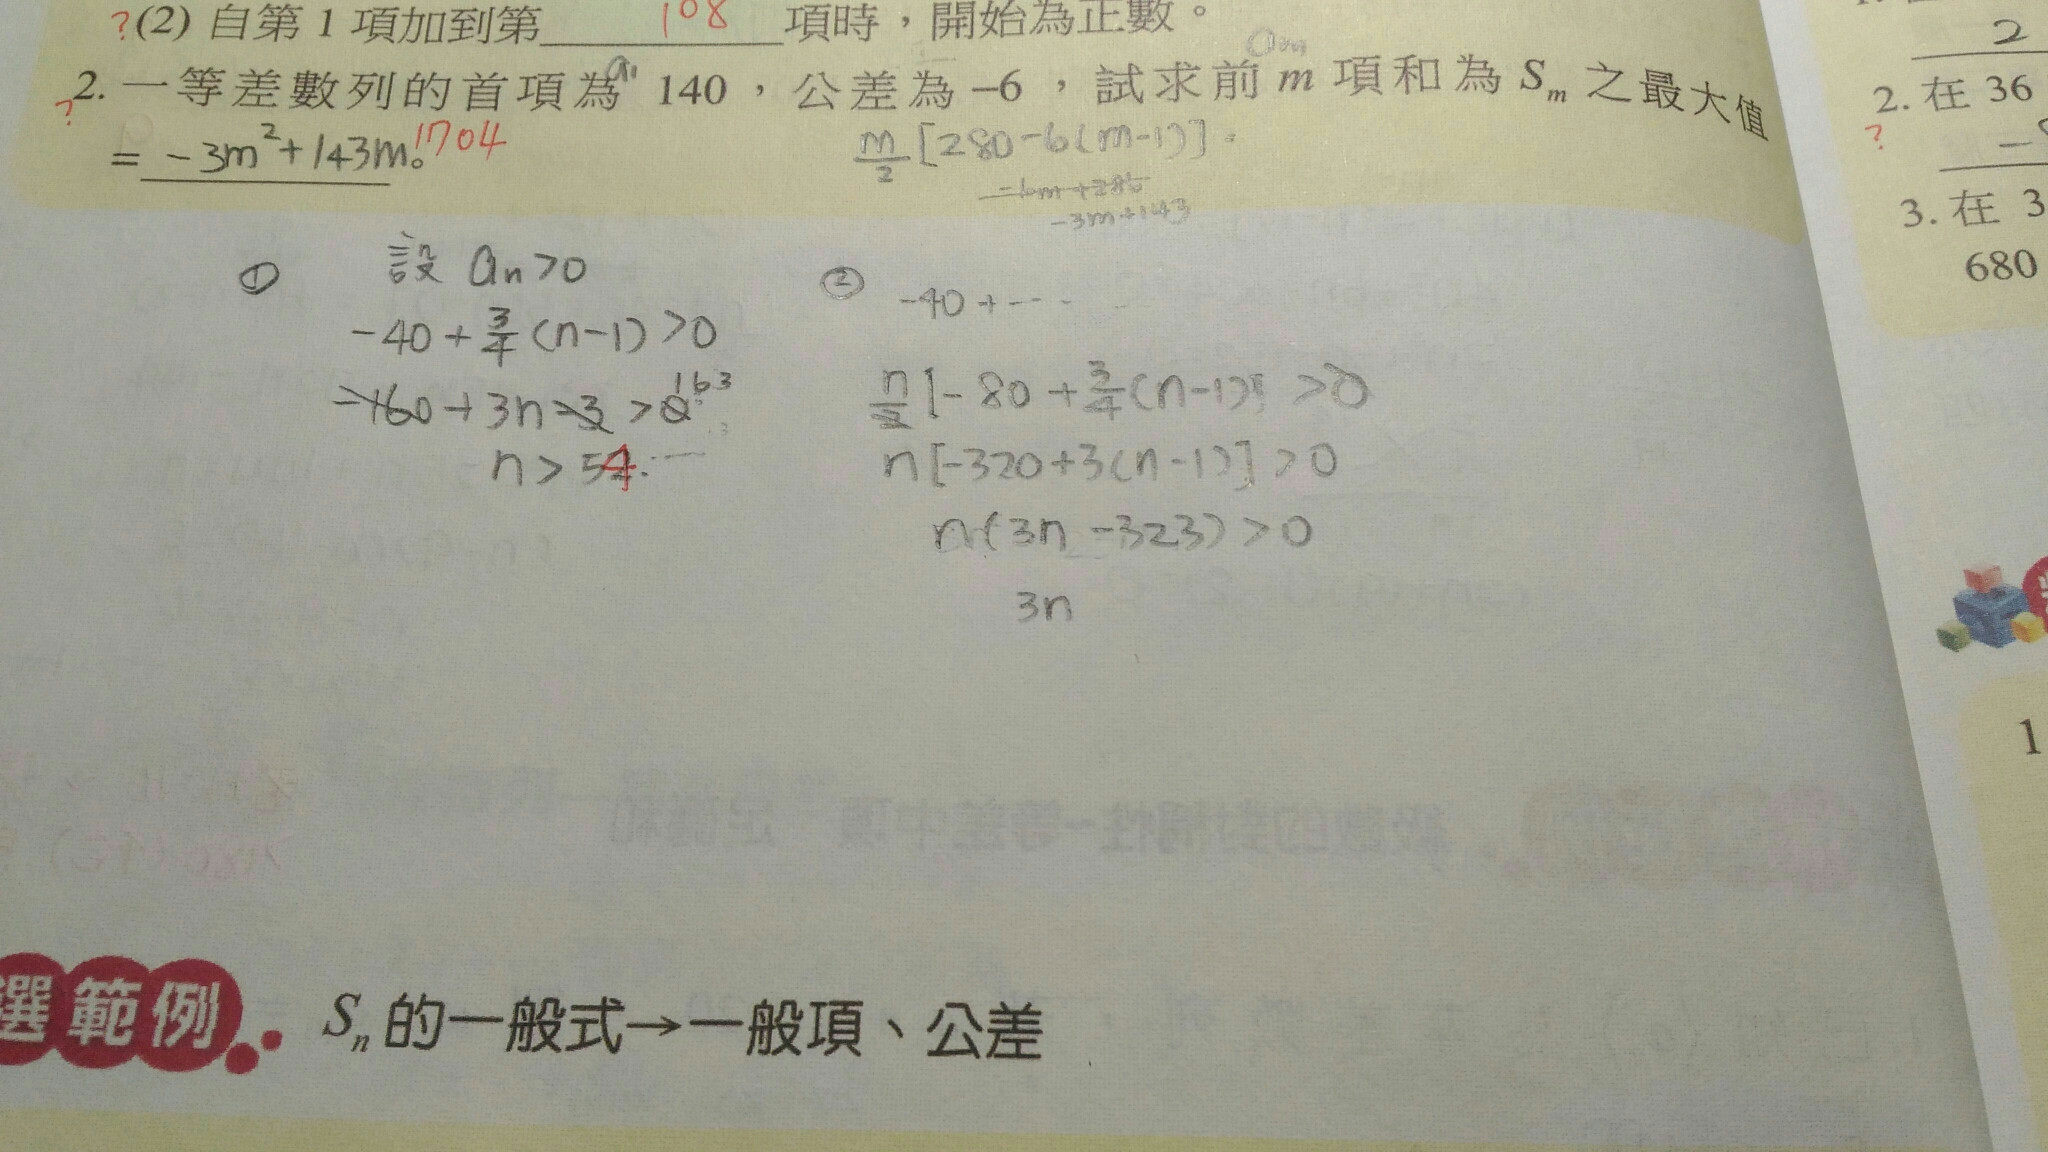 ?(2) 自第 1 項加到第 108 項時，開始為正數。
am
a1
2. 一等差數列的首項為 140，公差為 –6，試求前 m 項和為 Sm 之最大值
?
= -3m²+143m。1704
m/2 [280-6(m-1)].
-3m+143
① 設 an>0
-40+3/4(n-1)>0
-160+3n-3>0 163
n>54.…
② -40+---
n/2[-80+3/4(n-1)]>0
n[-320+3(n-1)]>0
n(3n-323)>0
3n
選範例 Sn的一般式→一般項、公差
2
2. 在 36
?
3. 在 3
680
1